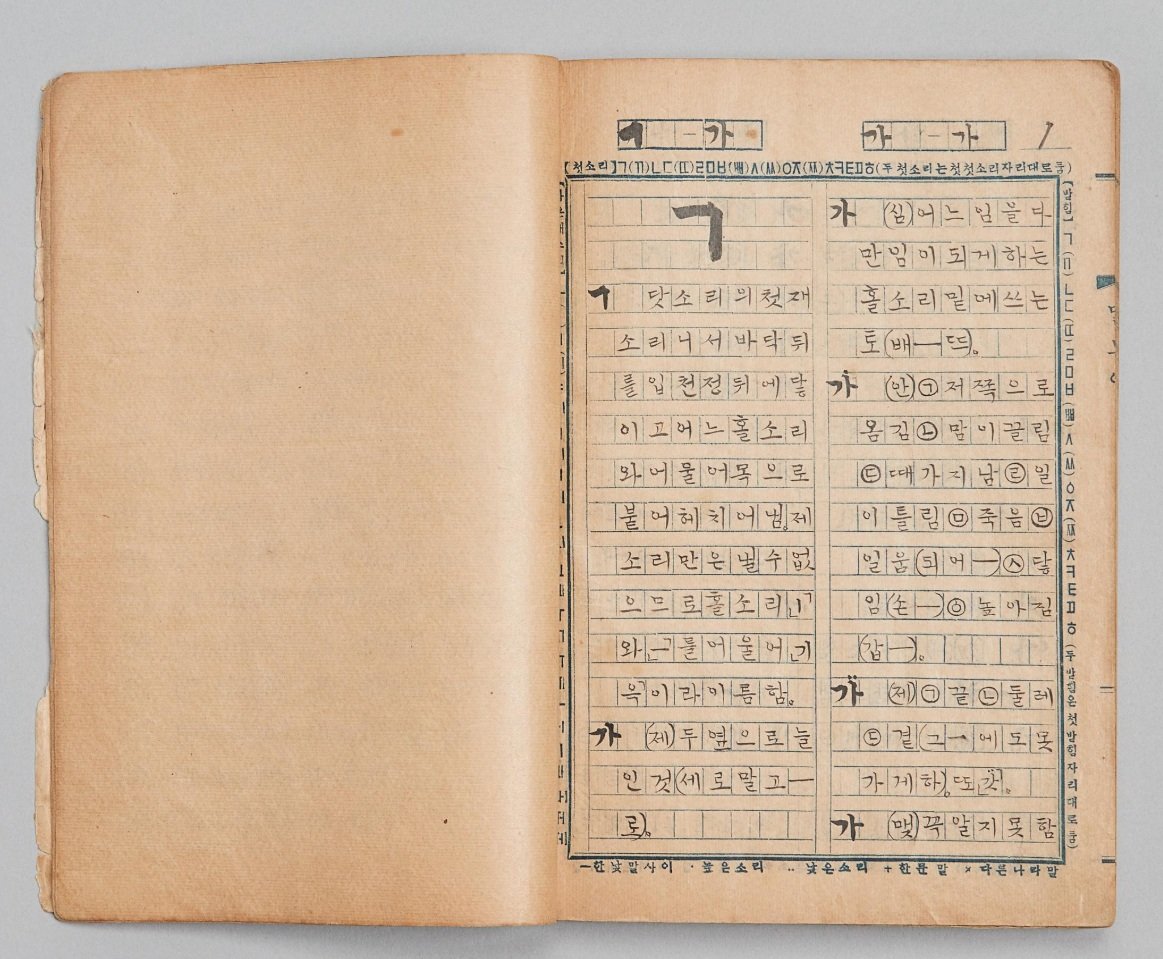 ㄱ - 가
가 - 가
1
【첫소리】ㄱ(ㄲ)ㄴㄷ(ㄸ)ㄹㅁㅂ(ㅃ)ㅅ(ㅆ)ㅇㅈ(ㅉ)ㅊㅋㅌㅍㅎ(두 첫소리는첫첫소리자리대로둠)
ㄱ
ㄱ 닷소리의첫재
소리니서바닥뒤
를입천정뒤에닿
이고어느홀소리
와어물어목으로
붙어헤치어냄。제
소리만은낼수없
으므로홀소리「ㅣ」
와「ㅡ」를어울어「기
윽」이라이름함。
가 (제)두옆으로늘
인것(세로말고—
로)。
가 (심)어느임을다
만임이되게하는
홀소리밑에쓰는
토(배—뜨)。
가 (안)㉠저쪽으로
옴김㉡맘이끌림
㉢때가지남㉣일
이틀림㉤죽음㉥
일움(되어—)㉦닿
임(손—)㉧높아짐
(갑—)。
가 (제)㉠끝㉡둘레
㉢곁(그—에도못
가게하)。또「갓」。
가 (맺)꼭알지못함
【받힘】ㄱ(ㄲ)ㄴㄷ(ㄸ)ㄹㅁㅂ(ㅃ)ㅅ(ㅆ)ㅇㅈ(ㅉ)ㅊㅋㅌㅍㅎ(두 받힘은첫받힘자리대로둠)
—한낮말사이 ·높은소리 ··낮은소리 +한문말 ×다른나라말